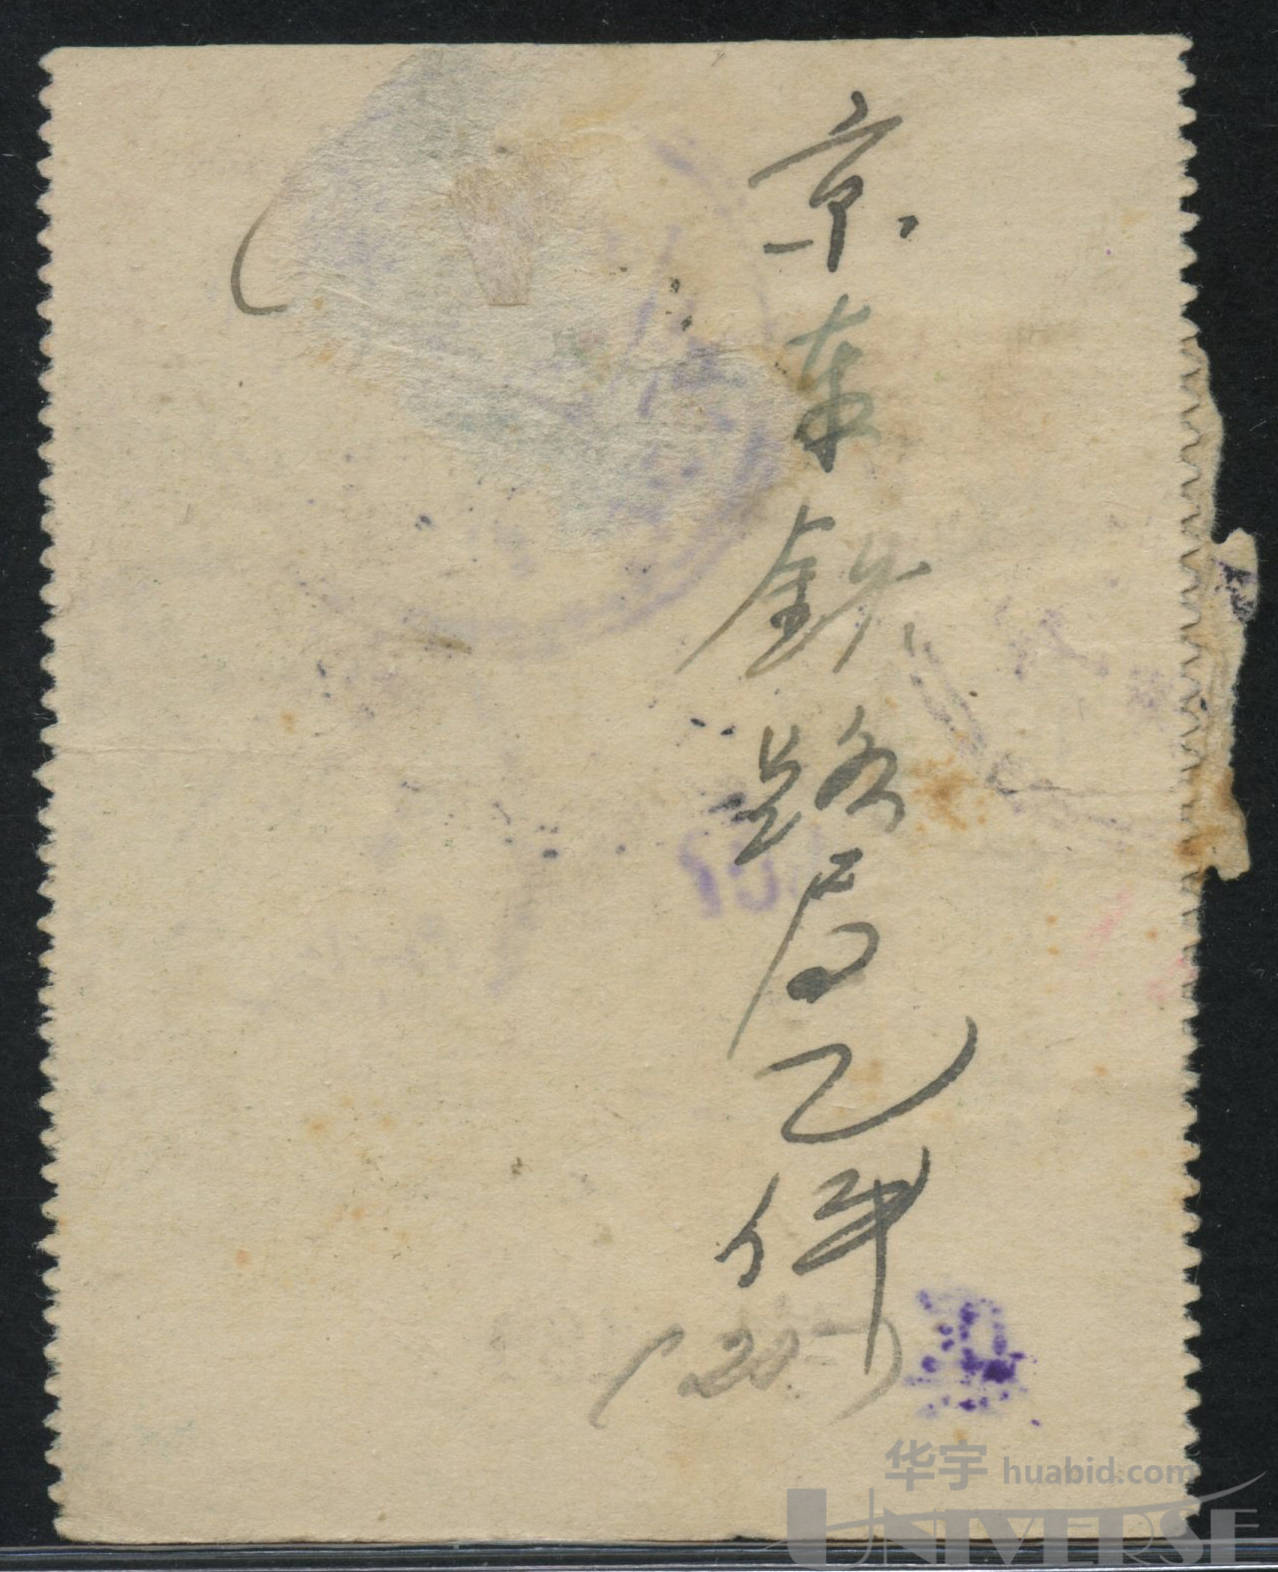 京車鉄路局乙件
(20)
华宇 huabid.com
UNIVERSE